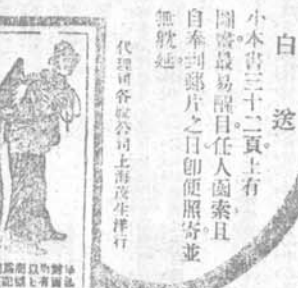 白送
小本書三十二頁上有
圖畫最易醒目任人函索且
自奉到郵片之日卽便照寄並
無躭延
代理司各脫公司上海茂生洋行